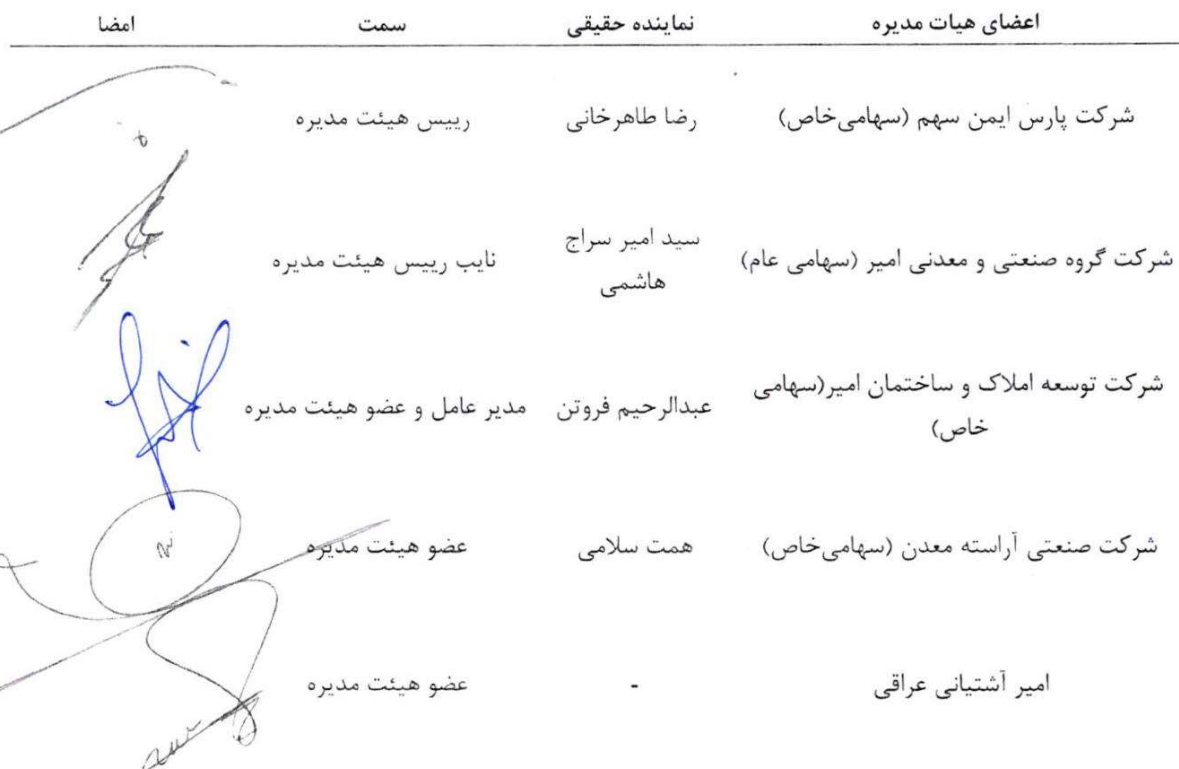 اعضای هیات مدیره نماینده حقیقی سمت امضا
شرکت پارس ایمن سهم (سهامی‌خاص) رضا طاهرخانی رییس هیئت مدیره
شرکت گروه صنعتی و معدنی امیر (سهامی عام) سید امیر سراج هاشمی نایب رییس هیئت مدیره
شرکت توسعه املاک و ساختمان امیر(سهامی خاص) عبدالرحیم فروتن مدیر عامل و عضو هیئت مدیره
شرکت صنعتی آراسته معدن (سهامی‌خاص) همت سلامی عضو هیئت مدیره
امیر آشتیانی عراقی - عضو هیئت مدیره